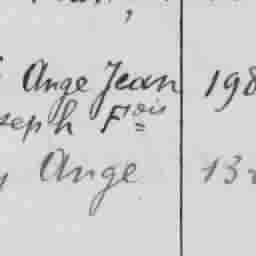 Ange Jean 198
seph Fois
Ange 13